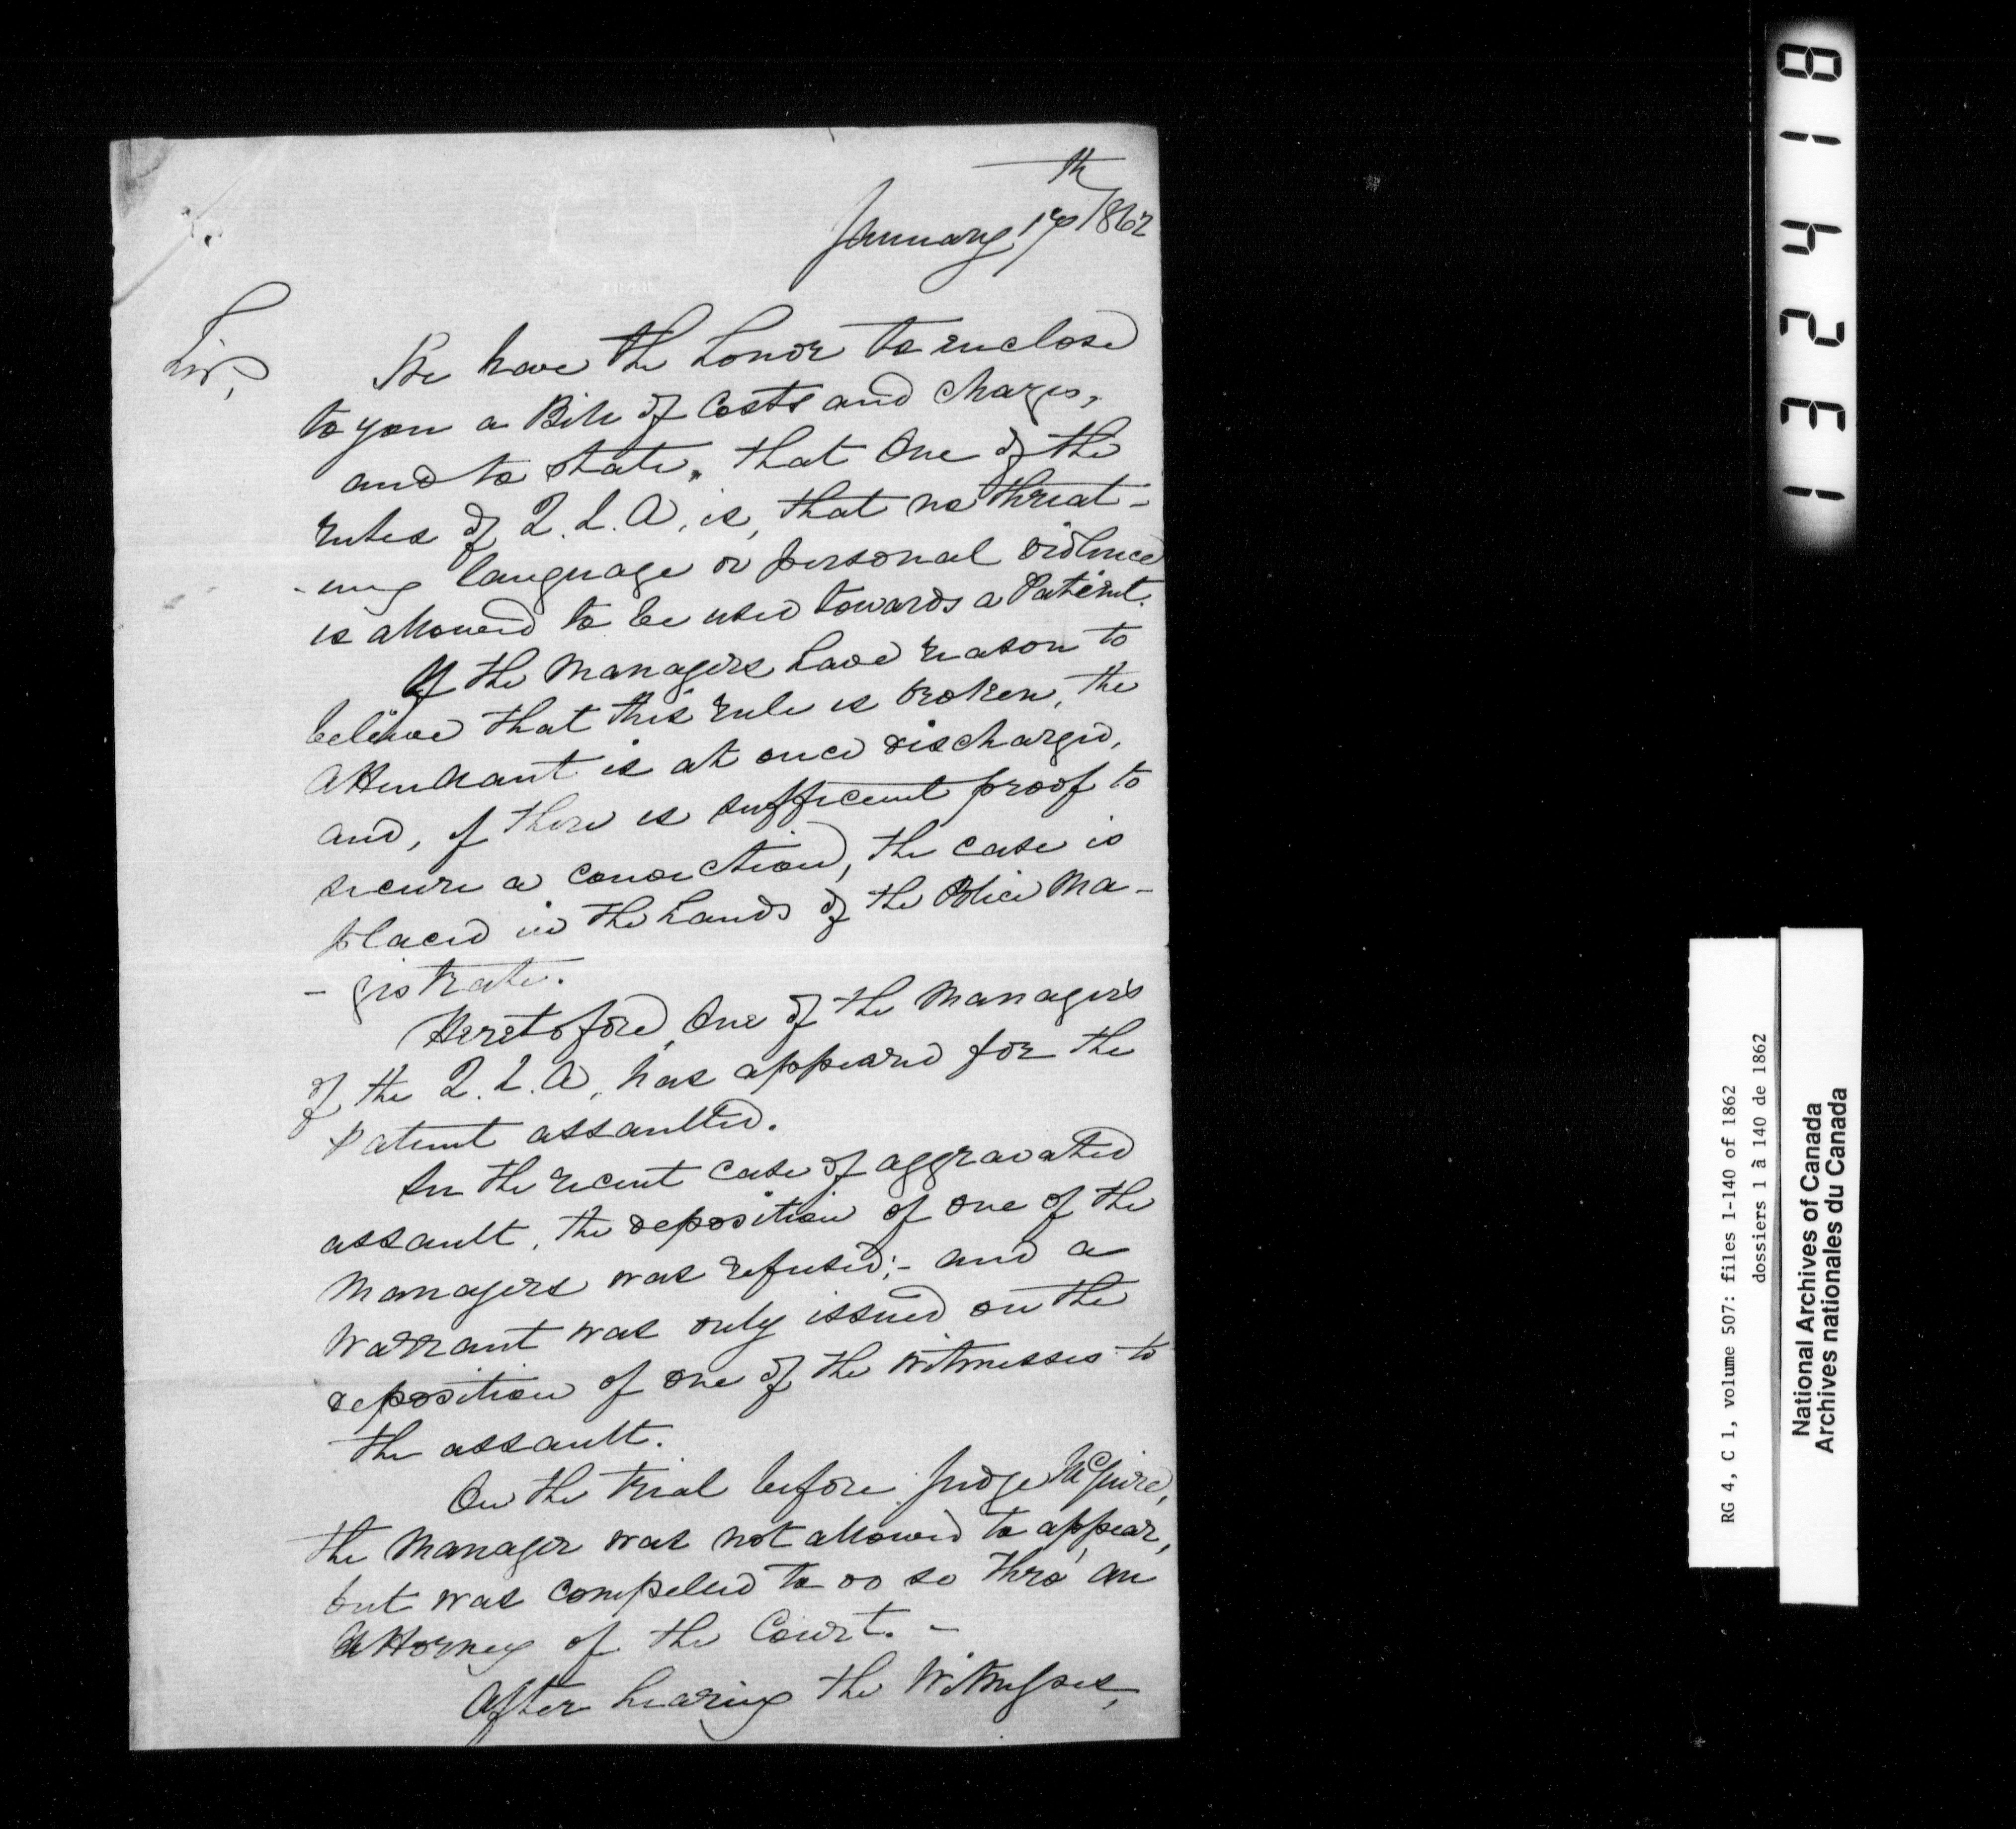 January 17th 1862
Sir,
We have the honor to enclose
to you a Bill of Costs and charges,
and to state, that One of the
rules of Q. L. A, is, that no threat-
-ning language or personal violence
is allowed to be used towards a Patient.
If the Managers have reason to
believe that this rule is broken, the
Attendant is at once discharged,
and, if there is sufficient proof to
secure a conviction, the case is
placed in the hands of the Police Ma-
-gistrate.
Heretofore, One of the Managers
of the Q. L. A, has appeared for the
Patient assaulted.
In the recent case of aggravated
assault, the deposition of one of the
Managers was refused;- and a
Warrant was only issued on the
deposition of one of the witnesses to
the assault.
On the trial before Judge McGuire,
the Manager was not allowed to appear,
but was compelled to do so thro' an
Attorney of the Court. -
After hearing the Witnesses,
132418
RG 4, C 1, volume 507: files 1-140 of 1862
dossiers 1 à 140 de 1862
National Archives of Canada
Archives nationales du Canada